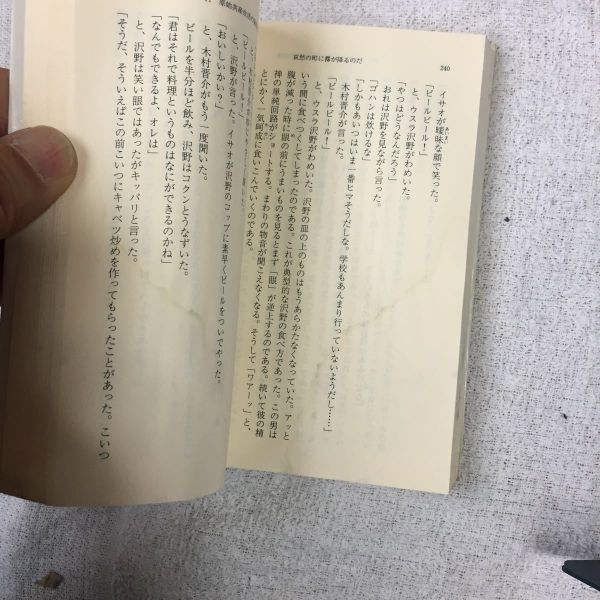 哀愁の町に霧が降るのだ
240
イサオが曖昧な顔で笑った。
「ビールビール！」
と、ウスラ沢野がわめいた。
「やつはどうなんだろう」
おれは沢野を見ながら言った。
「ゴハンは炊けるな」
「しかもあいつはいま一番ヒマそうだしな。学校もあんまり行っていないようだし……」
木村晋介が言った。
「ビールビール！」
と、ウスラ沢野がわめいた。沢野の皿の上のものはもうあらかたなくなっていた。アッと
いう間に食べつくしてしまったのである。これが典型的な沢野の食べ方であった。この男は
腹が減った時に眼の前にうまいものを見るとまず「眼」が逆上するのである。続いて彼の精
神の単純回路がショートする。まわりの物音が聞こえなくなる。そうして「ワアーッ」と、
とにかく一気呵成に食いこんでいくのである。
「ビールビール！」
と、沢野が言った。イサオが沢野のコップに素早くビールをついでやった。
「おいしいかい？」
と、木村晋介がもう一度聞いた。
ビールを半分ほど飲み、沢野はコクンとうなずいた。
「君はそれで料理というものはなにができるのかね」
「なんでもできるよ、オレは」
と、沢野は笑い眼ではあったがキッパリと言った。
「そうだ、そういえばこの前こいつにキャベツ炒めを作ってもらったことがあった。こいつ